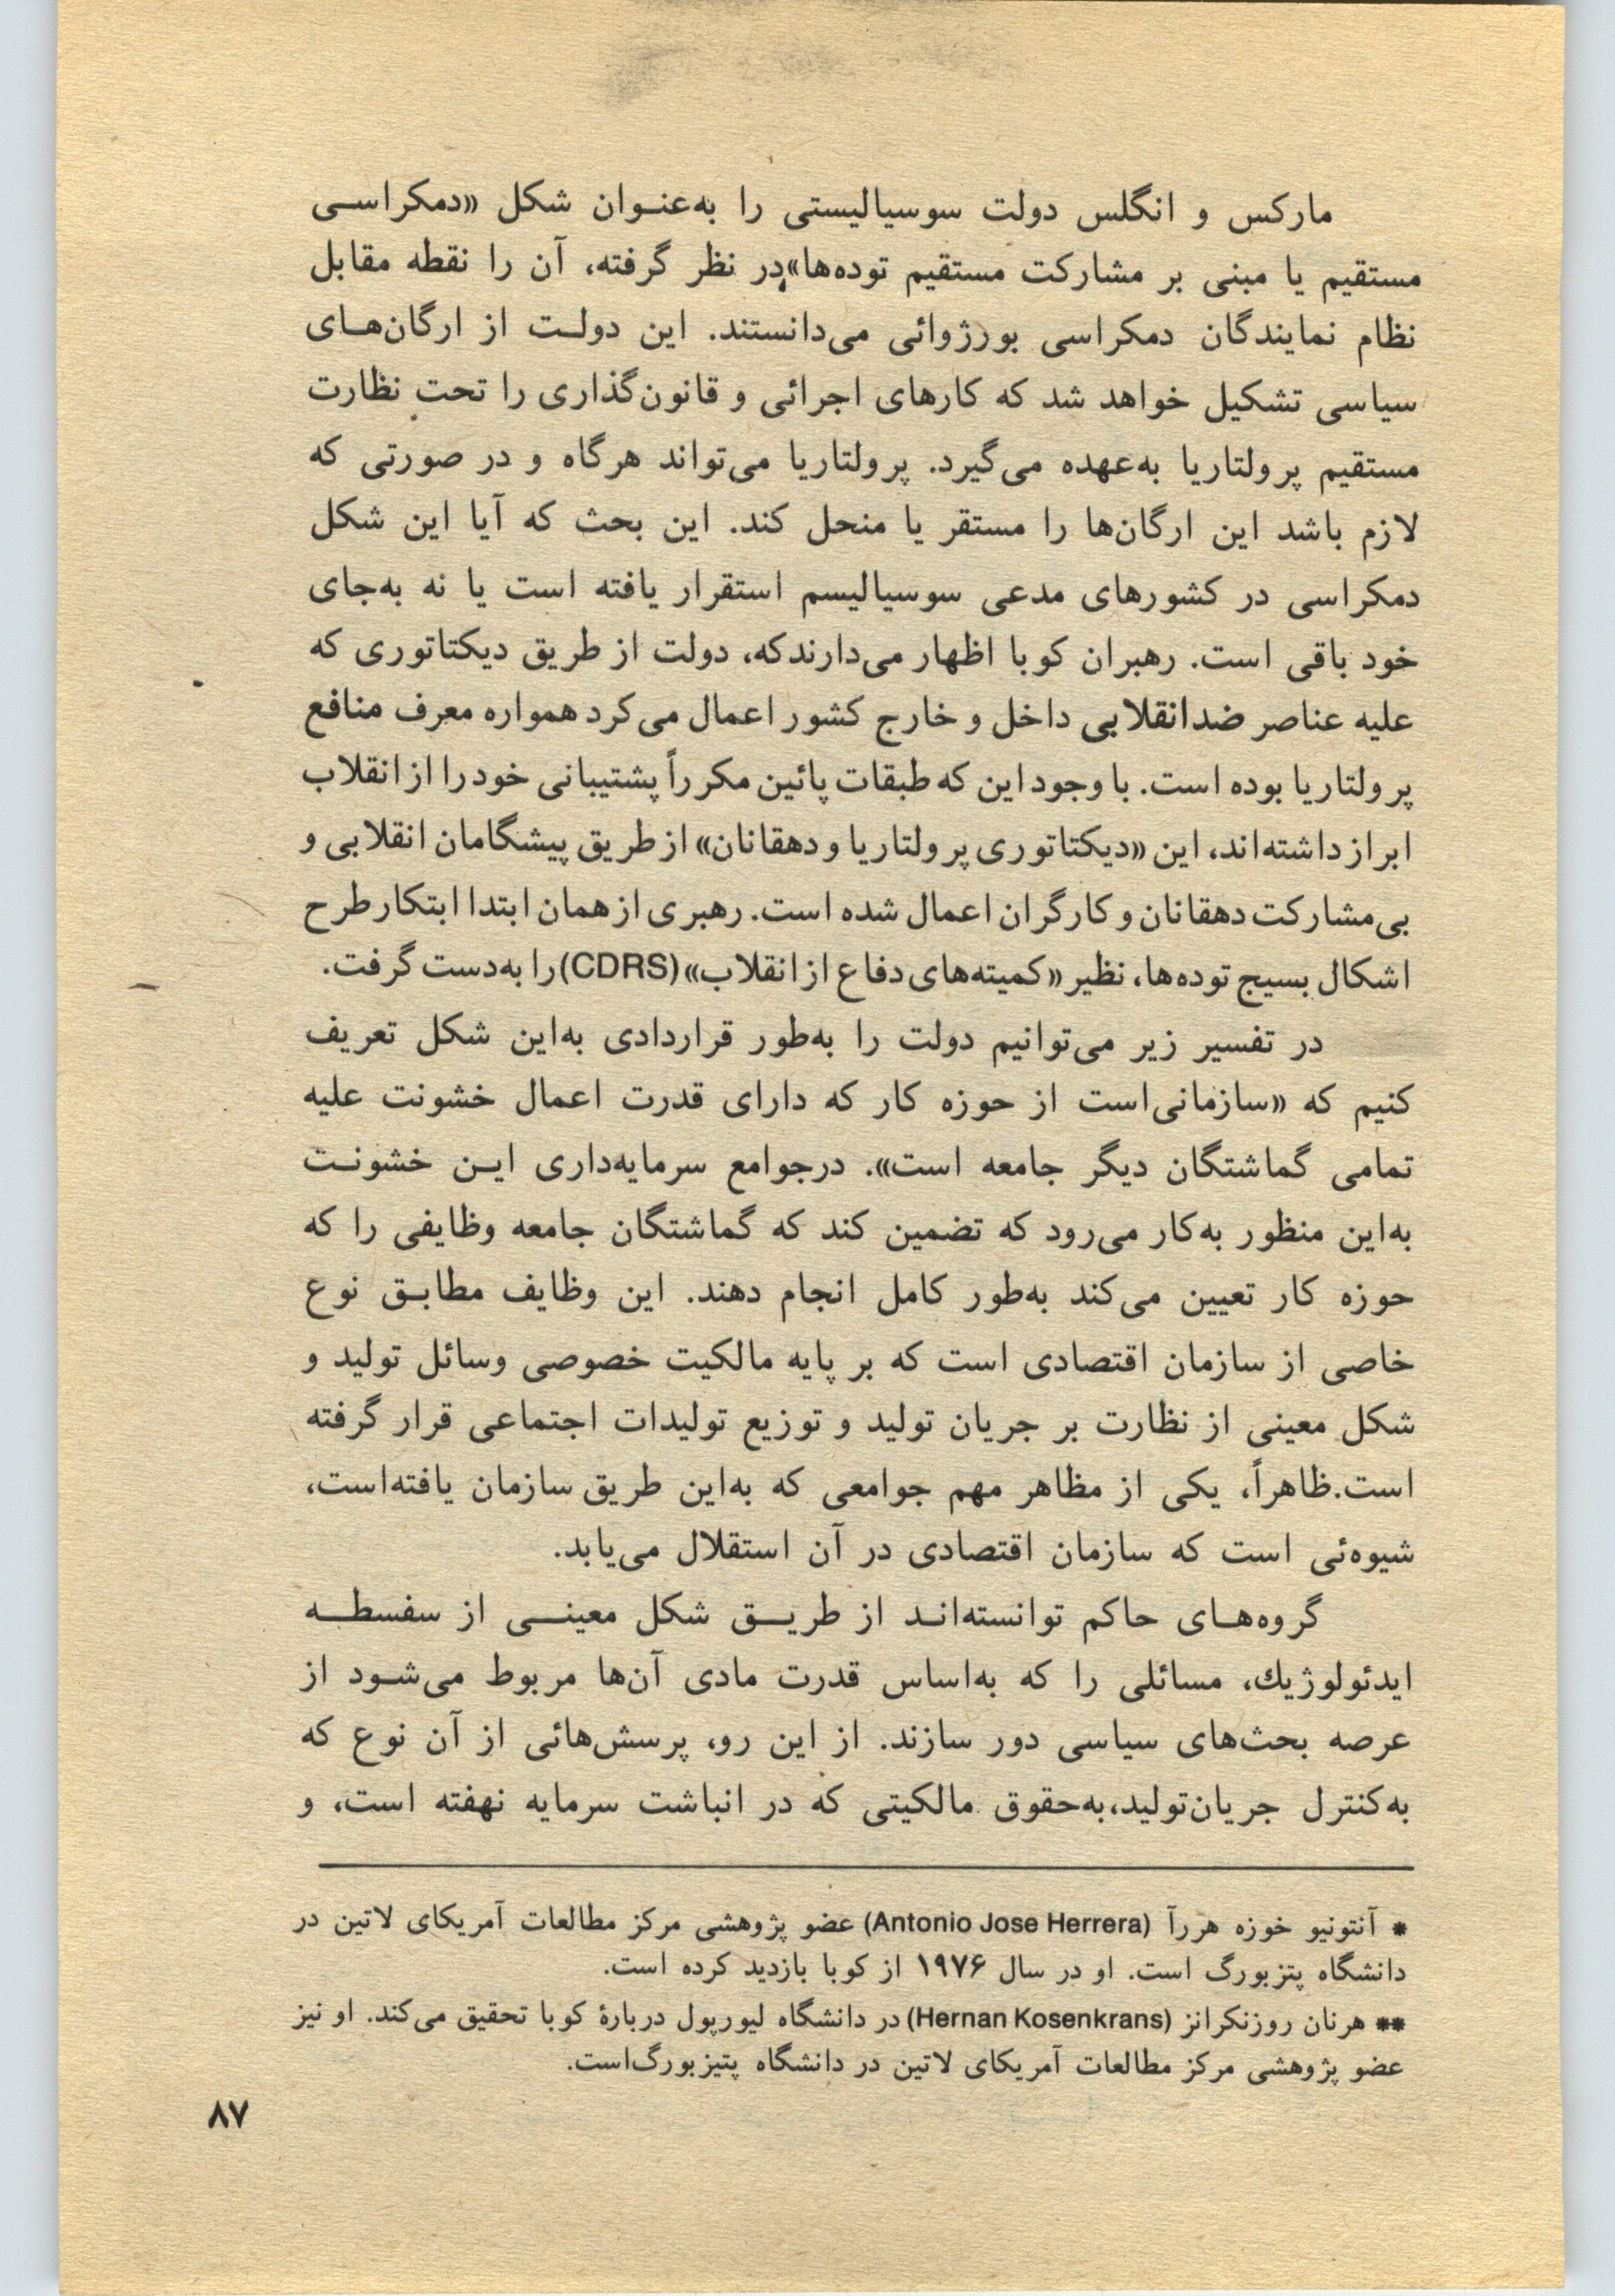 مارکس و انگلس دولت سوسیالیستی را به‌عنـوان شکل «دمکراسـی
مستقیم یا مبنی بر مشارکت مستقیم توده‌ها»در نظر گرفته، آن را نقطه مقابل
نظام نمایندگان دمکراسی بورژوائی می‌دانستند. این دولـت از ارگان‌هـای
سیاسی تشکیل خواهد شد که کارهای اجرائی و قانون‌گذاری را تحت نظارت
مستقیم پرولتاریا به‌عهده می‌گیرد. پرولتاریا می‌تواند هرگاه و در صورتی که
لازم باشد این ارگان‌ها را مستقر یا منحل کند. این بحث که آیا این شکل
دمکراسی در کشورهای مدعی سوسیالیسم استقرار یافته است یا نه به‌جای
خود باقی است. رهبران کوبا اظهار می‌دارندکه، دولت از طریق دیکتاتوری که
علیه عناصر ضدانقلابی داخل و خارج کشور اعمال می‌کرد همواره معرف منافع
پرولتاریا بوده است. با وجود این که طبقات پائین مکرراً پشتیبانی خود را از انقلاب
ابراز داشته‌اند، این «دیکتاتوری پرولتاریا و دهقانان» از طریق پیشگامان انقلابی و
بی‌مشارکت دهقانان و کارگران اعمال شده است. رهبری از همان ابتدا ابتکار طرح
اشکال بسیج توده‌ها، نظیر «کمیته‌های دفاع از انقلاب» (CDRS) را به‌دست گرفت.
در تفسیر زیر می‌توانیم دولت را به‌طور قراردادی به‌این شکل تعریف
کنیم که «سازمانی‌است از حوزه کار که دارای قدرت اعمال خشونت علیه
تمامی گماشتگان دیگر جامعه است». درجوامع سرمایه‌داری ایـن خشونـت
به‌این منظور به‌کار می‌رود که تضمین کند که گماشتگان جامعه وظایفی را که
حوزه کار تعیین می‌کند به‌طور کامل انجام دهند. این وظایف مطابـق نوع
خاصی از سازمان اقتصادی است که بر پایه مالکیت خصوصی وسائل تولید و
شکل معینی از نظارت بر جریان تولید و توزیع تولیدات اجتماعی قرار گرفته
است.ظاهراً، یکی از مظاهر مهم جوامعی که به‌این طریق سازمان یافته‌است،
شیوه‌ئی است که سازمان اقتصادی در آن استقلال می‌یابد.
گروه‌هـای حاکم توانسته‌انـد از طریـق شکل معینـی از سفسطـه
ایدئولوژیك، مسائلی را که به‌اساس قدرت مادی آن‌ها مربوط می‌شـود از
عرصه بحث‌های سیاسی دور سازند. از این رو، پرسش‌هائی از آن نوع که
به‌کنترل جریان‌تولید،به‌حقوق مالکیتی که در انباشت سرمایه نهفته است، و
* آنتونیو خوزه هررآ (Antonio Jose Herrera) عضو پژوهشی مرکز مطالعات آمریکای لاتین در
دانشگاه پتزبورگ است. او در سال ۱۹۷۶ از کوبا بازدید کرده است.
** هرنان روزنکرانز (Hernan Kosenkrans) در دانشگاه لیورپول دربارهٔ کوبا تحقیق می‌کند. او نیز
عضو پژوهشی مرکز مطالعات آمریکای لاتین در دانشگاه پتیزبورگ‌است.
۸۷